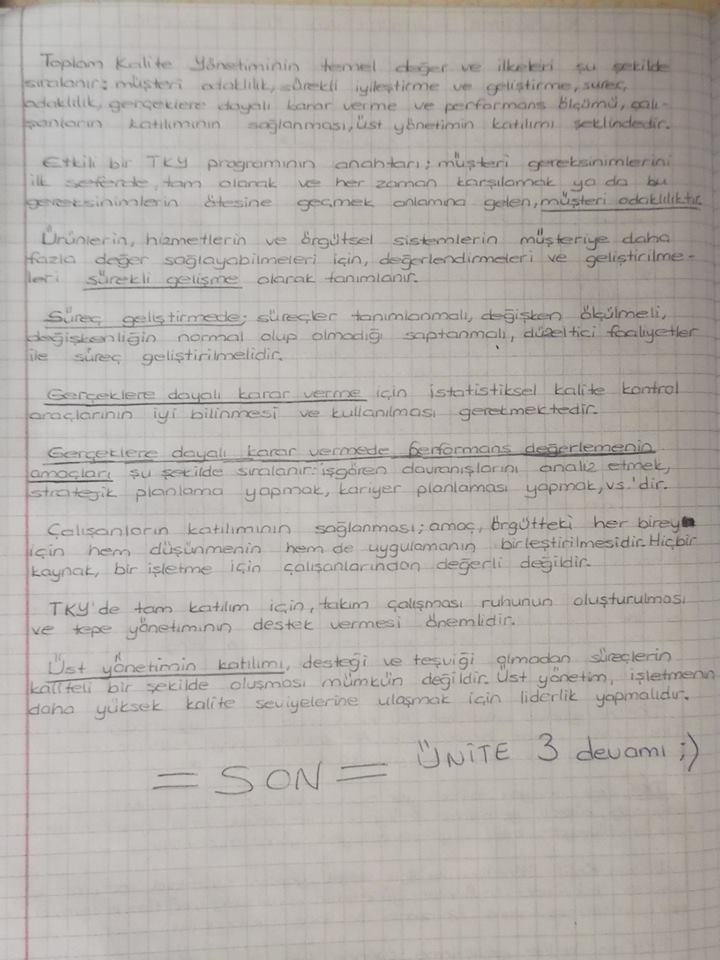 Toplam Kalite Yönetiminin temel değer ve ilkeleri şu şekilde
sıralanır: müşteri odaklılık, sürekli iyileştirme ve geliştirme, süreç
odaklılık, gerçeklere dayalı karar verme ve performans ölçümü, çalı-
şanların katılımının sağlanması, üst yönetimin katılımı şeklindedir.
Etkili bir TKY programının anahtarı; müşteri gereksinimlerini
ilk seferde, tam olarak ve her zaman karşılamak ya da bu
gereksinimlerin ötesine geçmek anlamına gelen, müşteri odaklılıktır.
Ürünlerin, hizmetlerin ve örgütsel sistemlerin müşteriye daha
fazla değer sağlayabilmeleri için, değerlendirmeleri ve geliştirilme-
leri sürekli gelişme olarak tanımlanır.
Süreç geliştirmede; süreçler tanımlanmalı, değişken ölçülmeli,
değişkenliğin normal olup olmadığı saptanmalı, düzeltici faaliyetler
ile süreç geliştirilmelidir.
Gerçeklere dayalı karar verme için istatistiksel kalite kontrol
araçlarının iyi bilinmesi ve kullanılması gerekmektedir.
Gerçeklere dayalı karar vermede performans değerlemenin
amaçları şu şekilde sıralanır: işgören davranışlarını analiz etmek,
stratejik planlama yapmak, kariyer planlaması yapmak, vs.'dir.
Çalışanların katılımının sağlanması; amaç, örgütteki her birey
için hem düşünmenin hem de uygulamanın birleştirilmesidir. Hiçbir
kaynak, bir işletme için çalışanlarından değerli değildir.
TKY'de tam katılım için, takım çalışması ruhunun oluşturulması
ve tepe yönetiminin destek vermesi önemlidir.
Üst yönetimin katılımı, desteği ve teşviği olmadan süreçlerin
kaliteli bir şekilde oluşması mümkün değildir. Üst yönetim, işletmenin
daha yüksek kalite seviyelerine ulaşmak için liderlik yapmalıdır.
= SON = ÜNİTE 3 devamı ;)